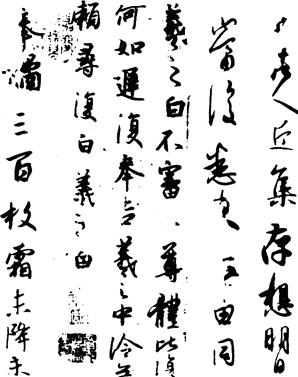 諸人近集存想明日
當復悉來無由同
羲之白不審尊體比復
何如遲復奉告羲之中冷無
賴尋復白羲之白
奉橘三百枚霜未降未